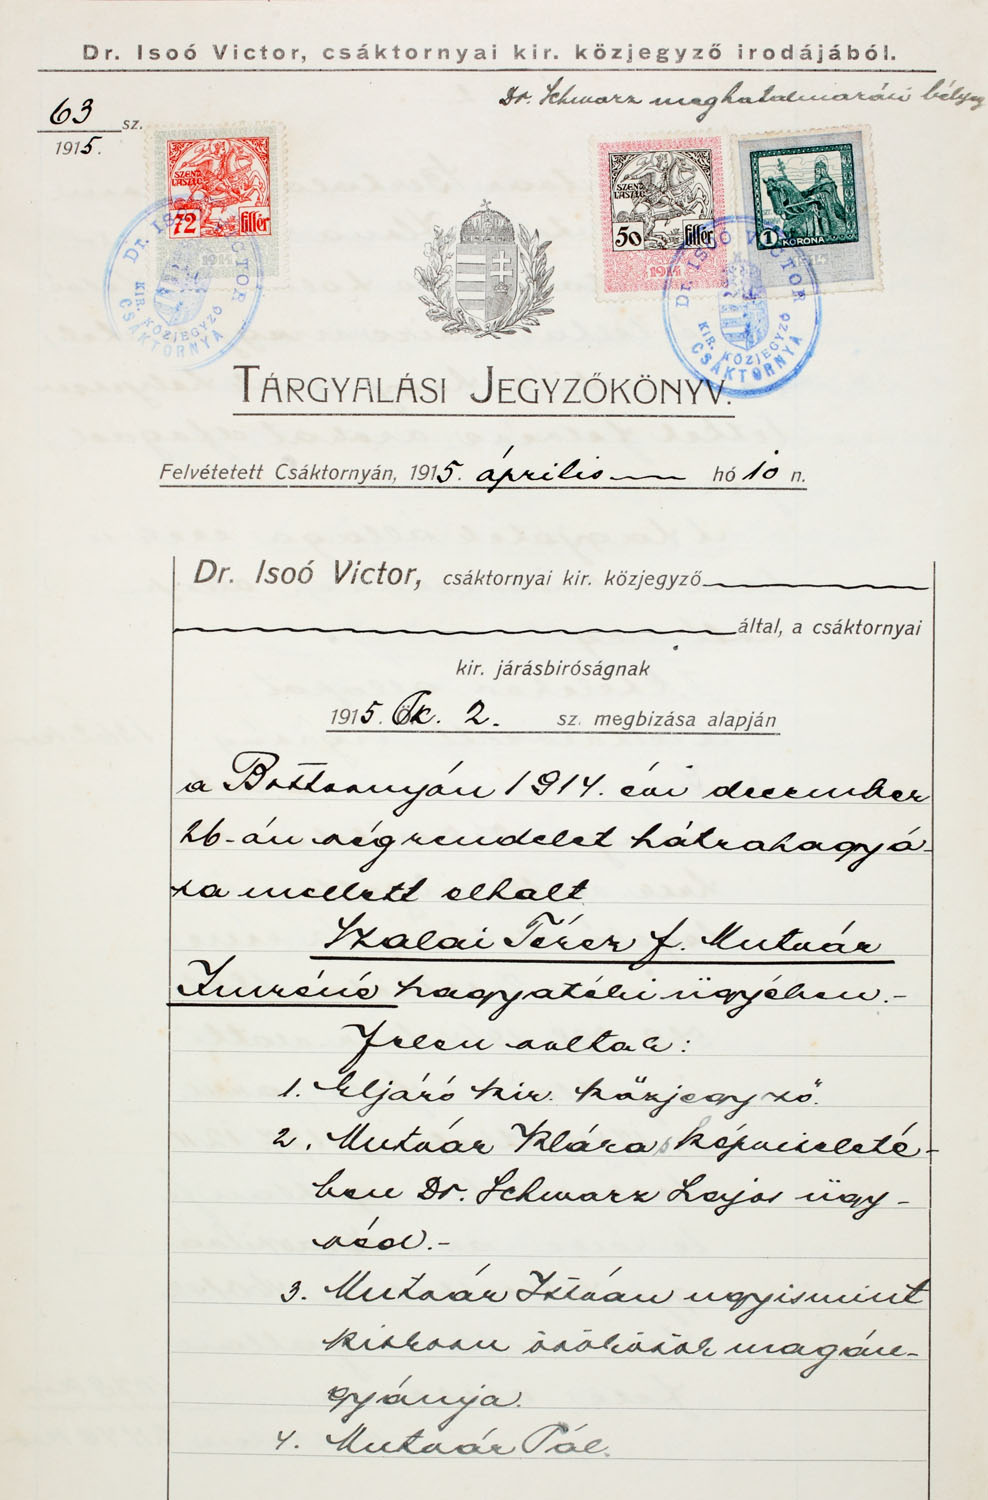 Dr. Isoó Victor, csáktornyai kir. közjegyző irodájából.
Dr. Schwarz meghatalmazási bélyeg
63 sz.
1915.
SZENT LÁSZLÓ
72 fillér
1914
SZENT LÁSZLÓ
50 fillér
1914
1 KORONA
1914
Dr. ISOÓ VICTOR
KIR. KÖZJEGYZŐ
CSÁKTORNYA
Dr. ISOÓ VICTOR
KIR. KÖZJEGYZŐ
CSÁKTORNYA
TÁRGYALÁSI JEGYZŐKÖNYV.
Felvétetett Csáktornyán, 1915. április hó 10 n.
Dr. Isoó Victor, csáktornyai kir. közjegyző
által, a csáktornyai
kir. járásbiróságnak
1915. Ök. 2. sz. megbizása alapján
a Bottornyán 1914. évi december
26-án végrendelet hátrahagyá-
sa mellett elhalt
Szalai Teréz f. Mutvár
Imréné hagyatéki ügyében.-
Jelen voltak:
1. Eljáró kir. közjegyző.
2. Mutvár Klára képviseleté-
ben Dr. Schwarz Lajos ügy-
véd.-
3. Mutvár István ugyismint
kiskoru örökösök magán-
gyámja.
4. Mutvár Pál.